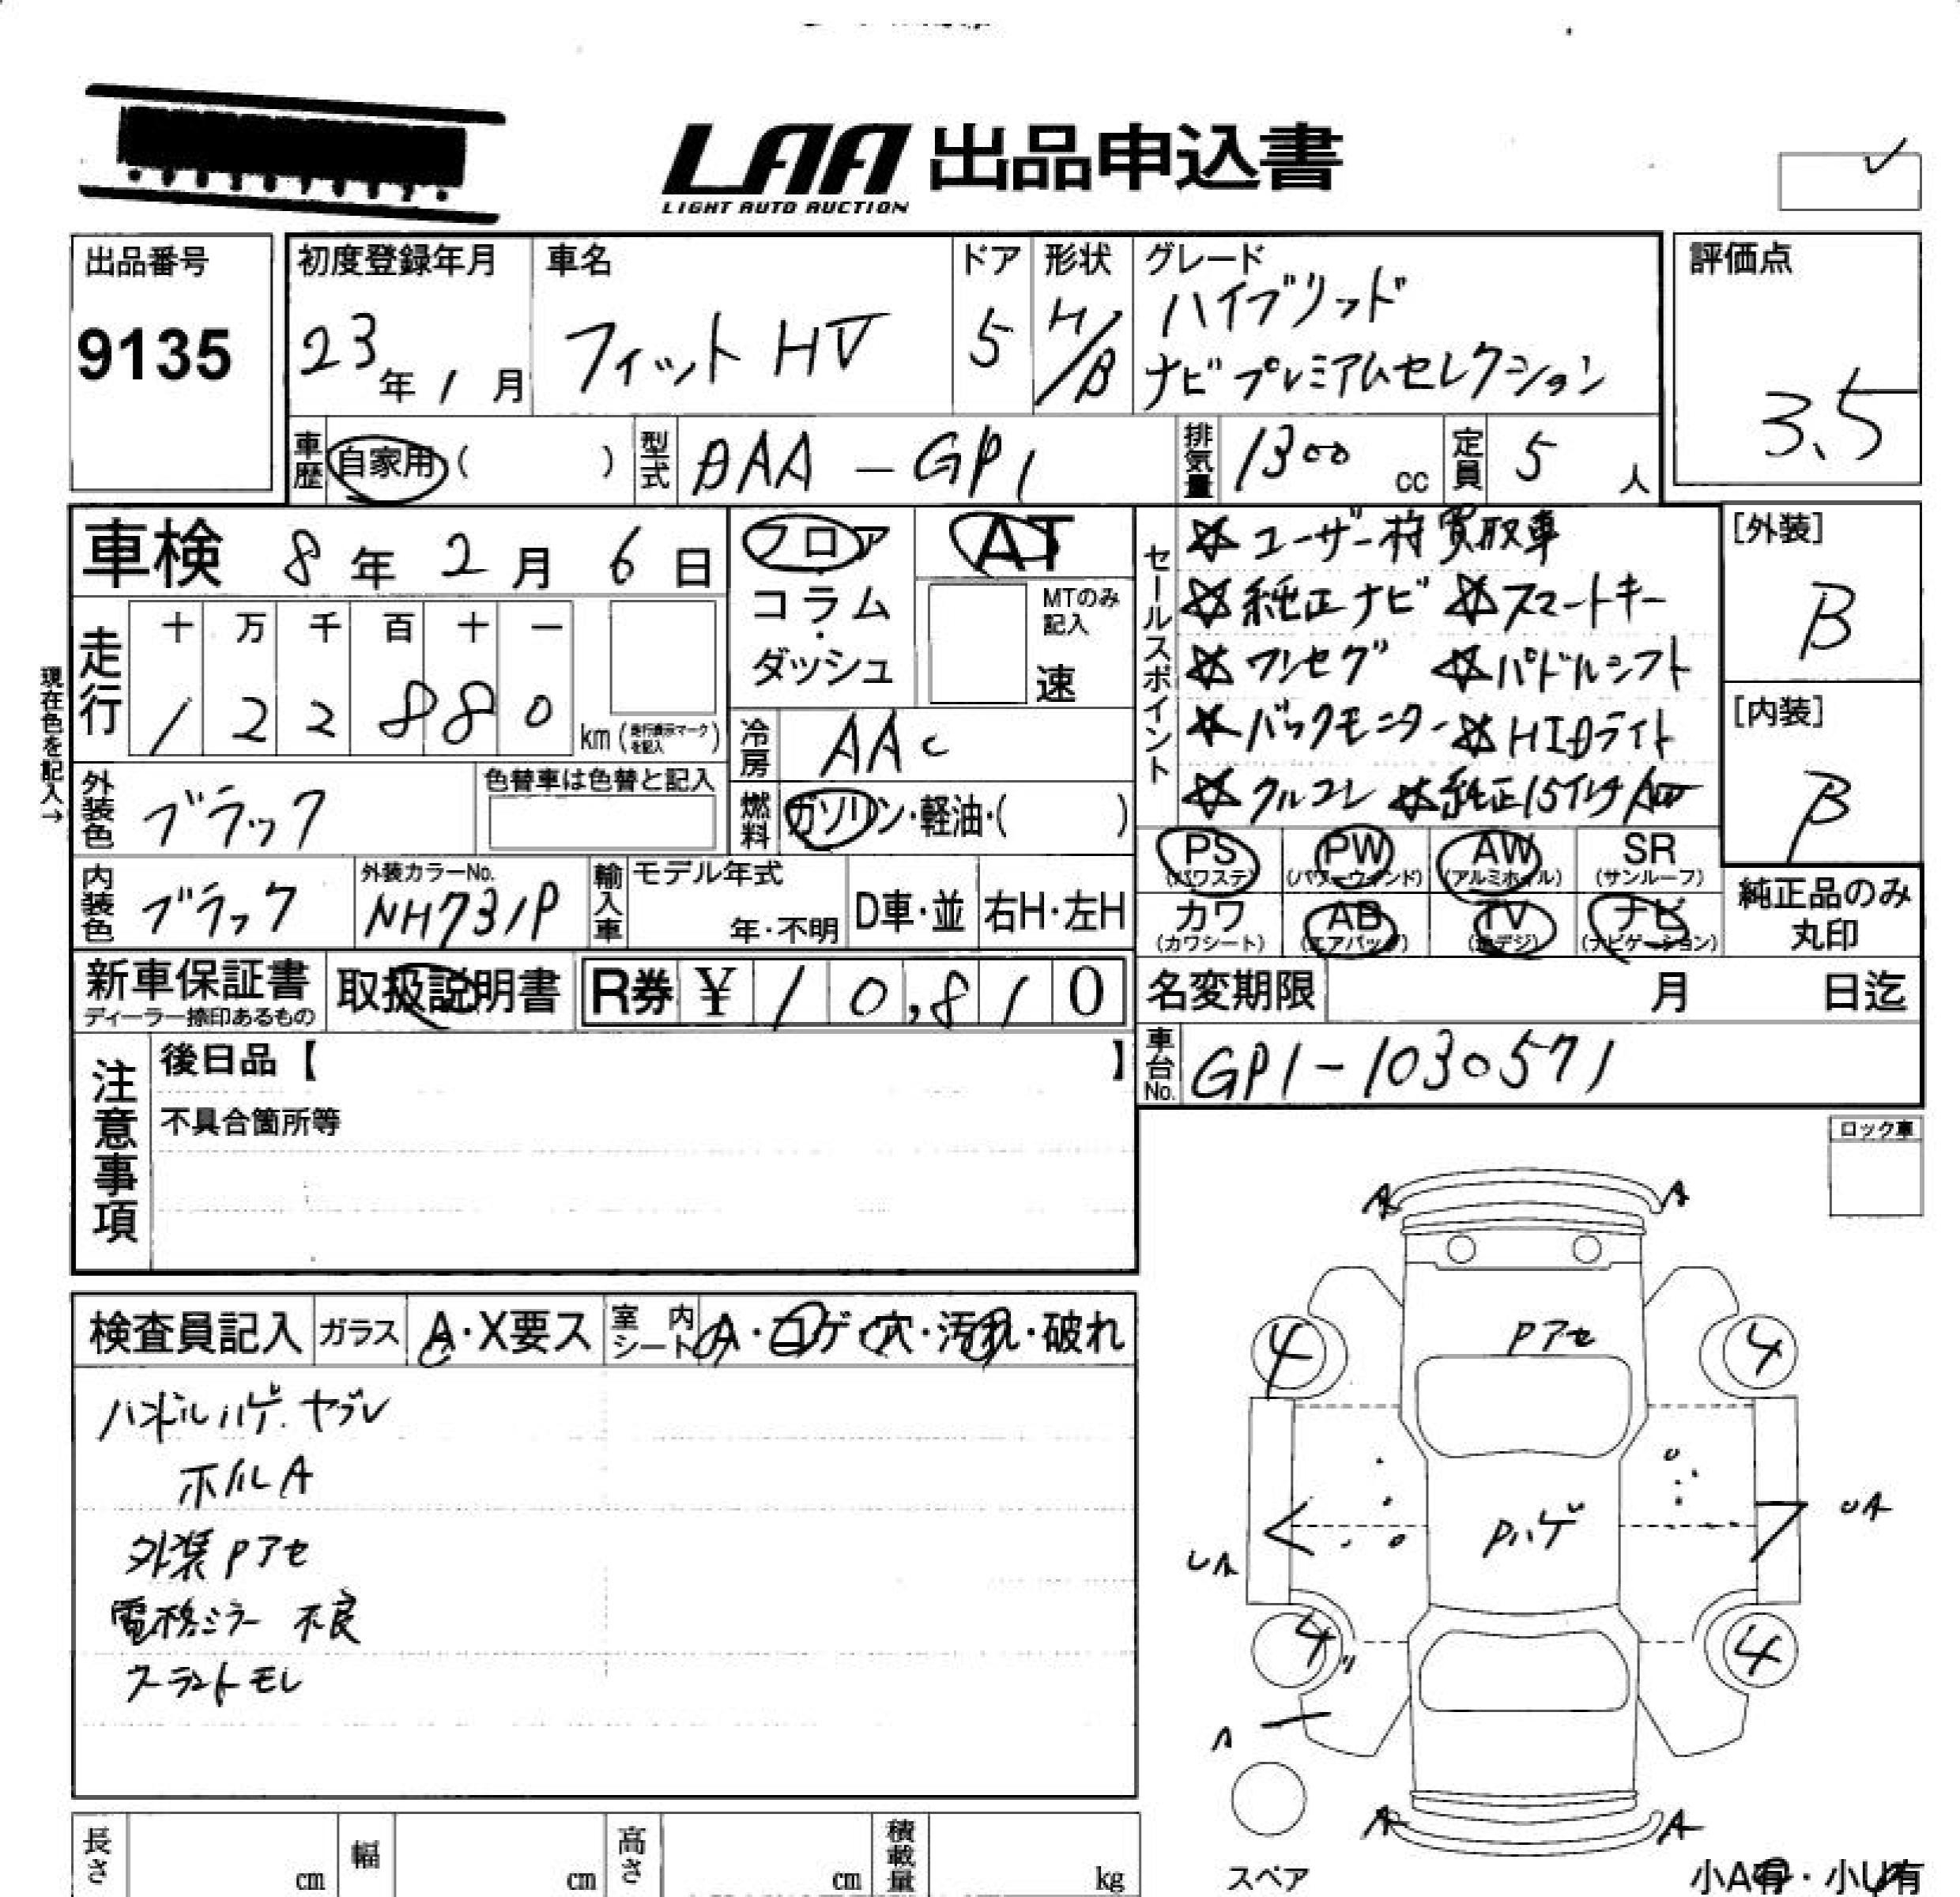 LAA 出品申込書
LIGHT AUTO AUCTION
出品番号
9135
初度登録年月
23年1月
車名
フィット HV
ドア
5
形状
H/B
グレード
ハイブリッド
ナビプレミアムセレクション
評価点
3.5
車歴 自家用 ( )
型式 DAA-GP1
排気量 1300 cc
定員 5 人
車検 8年2月6日
フロア・コラム・ダッシュ
AT
MTのみ記入
速
セールスポイント
☆ユーザー様買取車
☆純正ナビ ☆スマートキー
☆ワンセグ ☆パドルシフト
☆バックモニター ☆HIDライト
☆クルコン ☆純正15インチAW
[外装]
B
[内装]
B
現在色を記入→
走行
十 万 千 百 十 一
1 2 2 8 8 0 km (走行表示マークを記入)
冷房 AAC
外装色 ブラック
色替車は色替と記入
燃料 ガソリン・軽油・( )
内装色 ブラック
外装カラーNo.
NH731P
輸入車
モデル年式
年・不明
D車・並
右H・左H
PS (パワステ)
PW (パワーウィンド)
AW (アルミホイル)
SR (サンルーフ)
カワ (カワシート)
AB (エアバッグ)
TV (地デジ)
ナビ (ナビゲーション)
純正品のみ
丸印
新車保証書
ディーラー捺印あるもの
取扱説明書
R券 ¥ 10,810
名変期限 月 日迄
車台No. GP1-1030571
注意事項
後日品【 】
不具合箇所等
ロック車
検査員記入
ガラス A・X要ス
室内シート A・コゲ・穴・汚れ・破れ
ハンドルハゲ.ヤブレ
ホイルA
外装Pアセ
電格ミラー 不良
クーラントモレ
A A
Pアセ
4 4
Pハゲ
UA UA
4 4
A
A A
スペア
小A有・小U有
長さ cm
幅 cm
高さ cm
積載量 kg